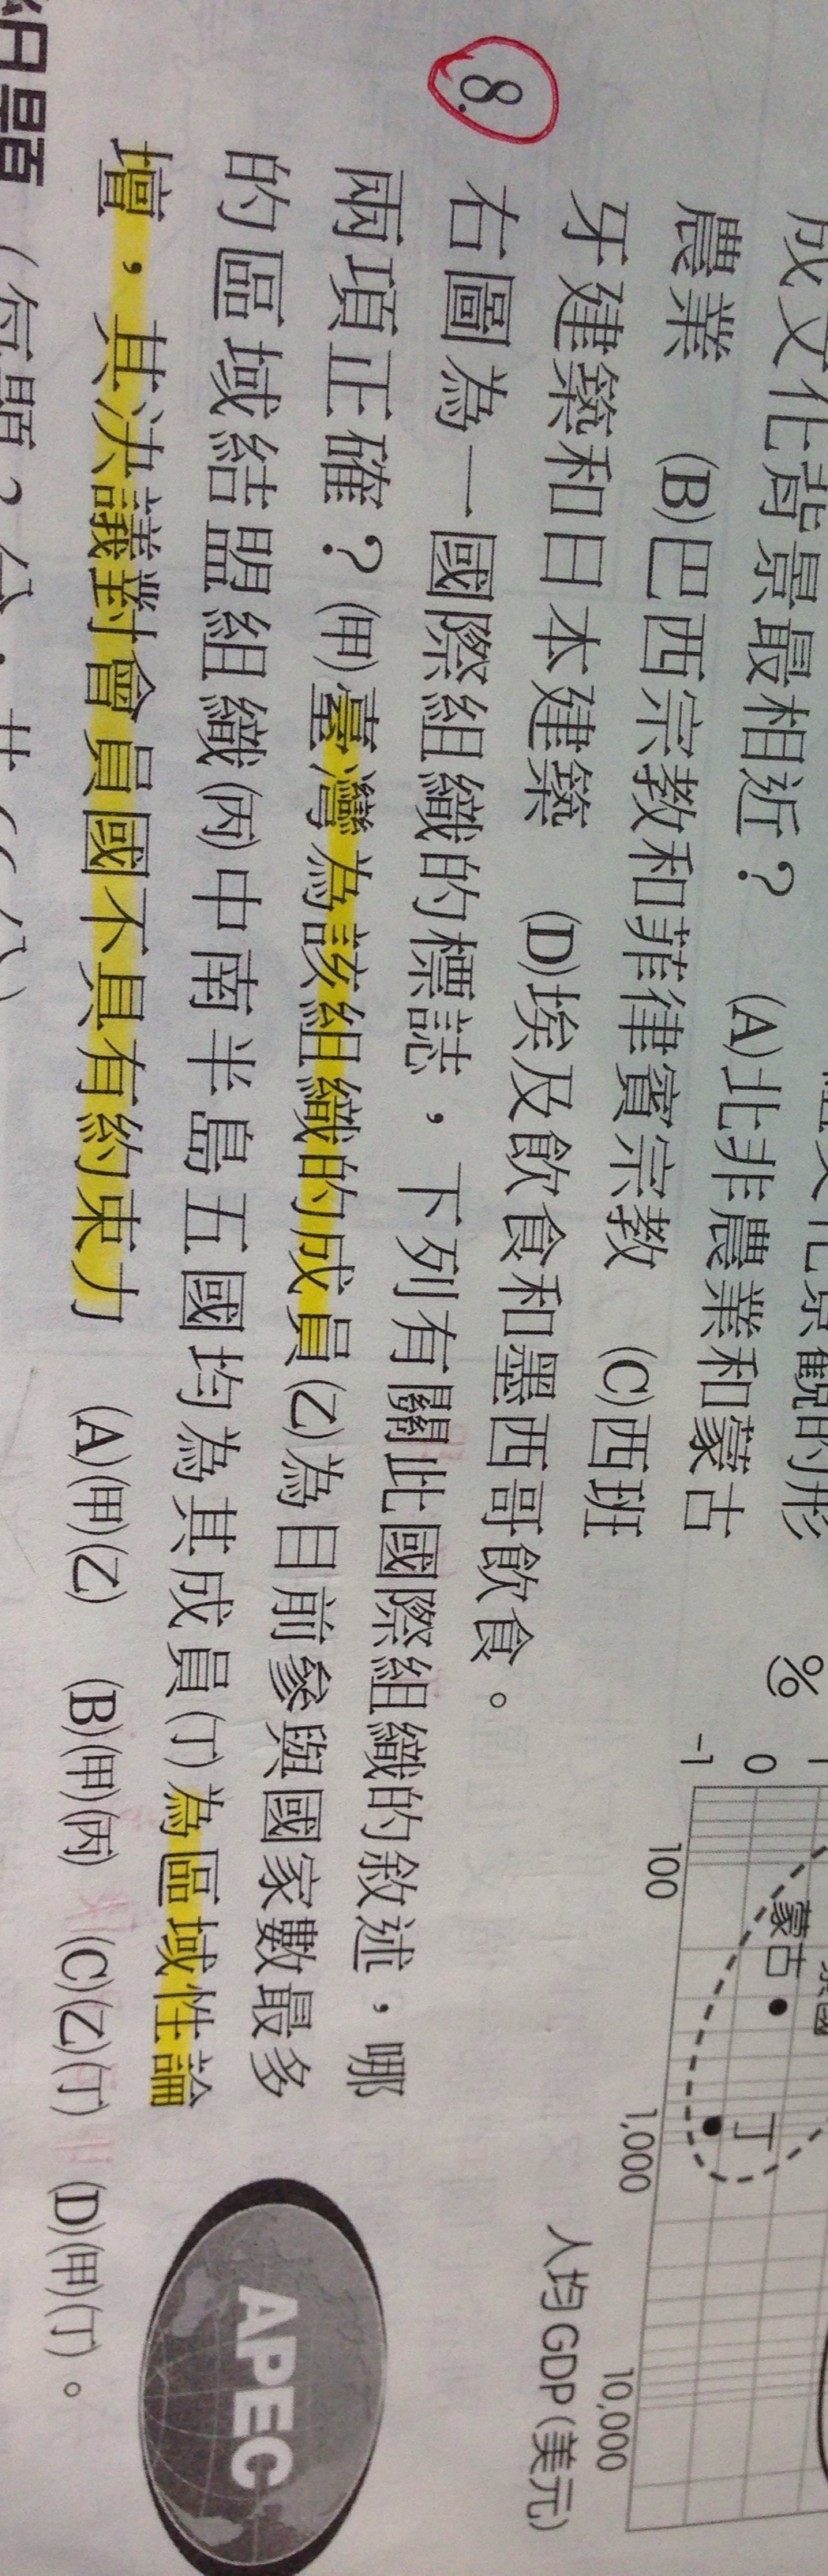 成文化背景最相近？ (A)北非農業和蒙古
農業 (B)巴西宗教和菲律賓宗教 (C)西班
牙建築和日本建築 (D)埃及飲食和墨西哥飲食。
8. 右圖為一國際組織的標誌，下列有關此國際組織的敘述，哪
兩項正確？(甲)臺灣為該組織的成員(乙)為目前參與國家數最多
的區域結盟組織(丙)中南半島五國均為其成員(丁)為區域性論
壇，其決議對會員國不具有約束力 (A)(甲)(乙) (B)(甲)(丙) (C)(乙)(丁) (D)(甲)(丁)。
%
0
-1
蒙古
丁
100
1,000
10,000
人均GDP(美元)
APEC